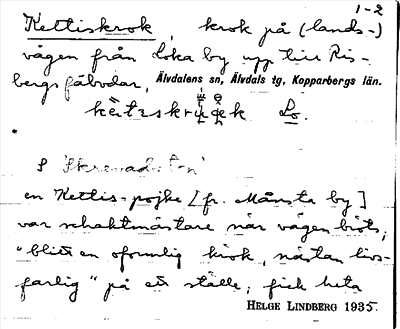 1-2
Kettiskrok, krok på (lands-)
vägen från Loka by upp till Ris-
bergs fäbodar, Älvdalens sn, Älvdals tg, Kopparbergs län.
Lo.
S
en Kettis-pojke [fr. Månsta by]
var schaktmästare när vägen bröts;
"blitt en oformlig krok, nästan livs-
farlig" på ett ställe; fick heta
HELGE LINDBERG 1935.